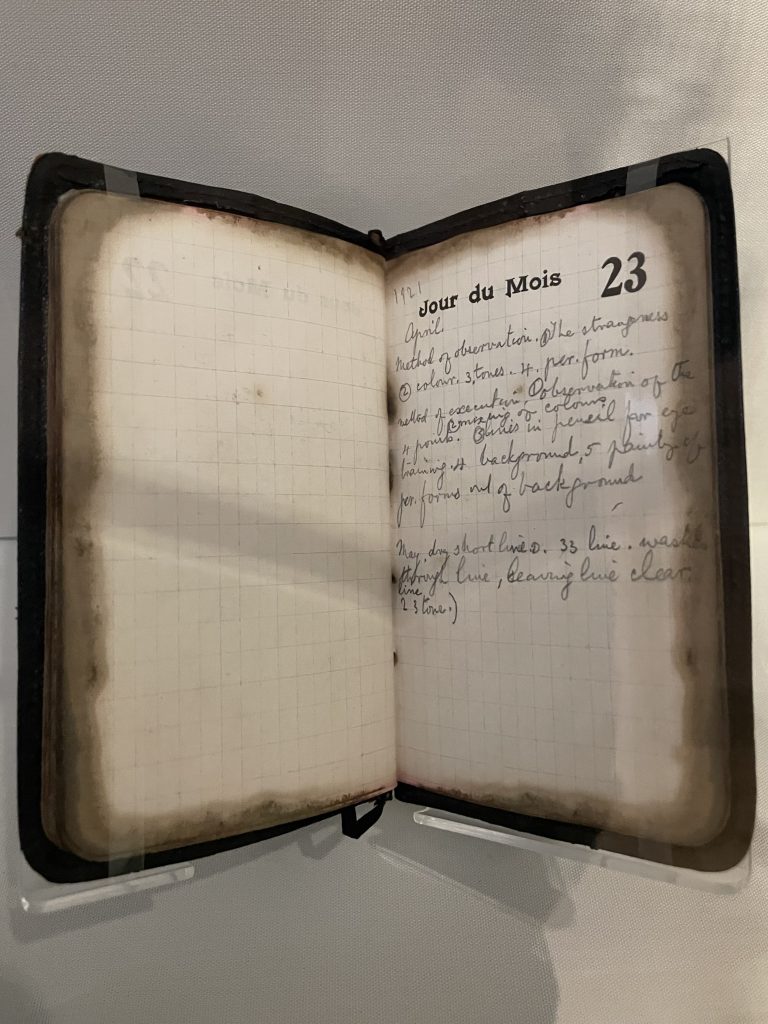 1921
Jour du Mois 23
April.
Method of observation. ① The strangeness
② colour. 3, tones. 4. per. form.
method of execution. ① observation of the
4 points. ② mixing of colours.
③ lines in pencil for eye
training. 4 background, 5 painting of
per. forms out of background
May, dry short lines. 33 line. washes
through line, leaving line clear.
line
2 3 tone.)